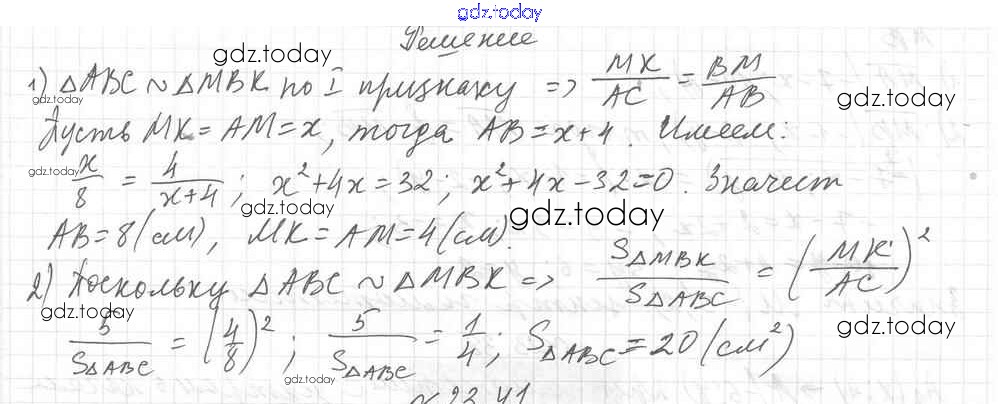 gdz.today
Решение
gdz.today
1) △ABC ~ △MBK по I признаку => MK/AC = BM/AB
gdz.today gdz.today
Пусть MK = AM = x, тогда AB = x+4. Имеем:
gdz.today
x/8 = 4/(x+4); x²+4x=32; x²+4x-32=0. Значит
gdz.today gdz.today
AB=8(см), MK=AM=4(см).
2) Поскольку △ABC ~ △MBK => S△MBK/S△ABC = (MK/AC)²
gdz.today gdz.today
5/S△ABC = (4/8)²; 5/S△ABC = 1/4; S△ABC=20(см²)
gdz.today
№ 22.41